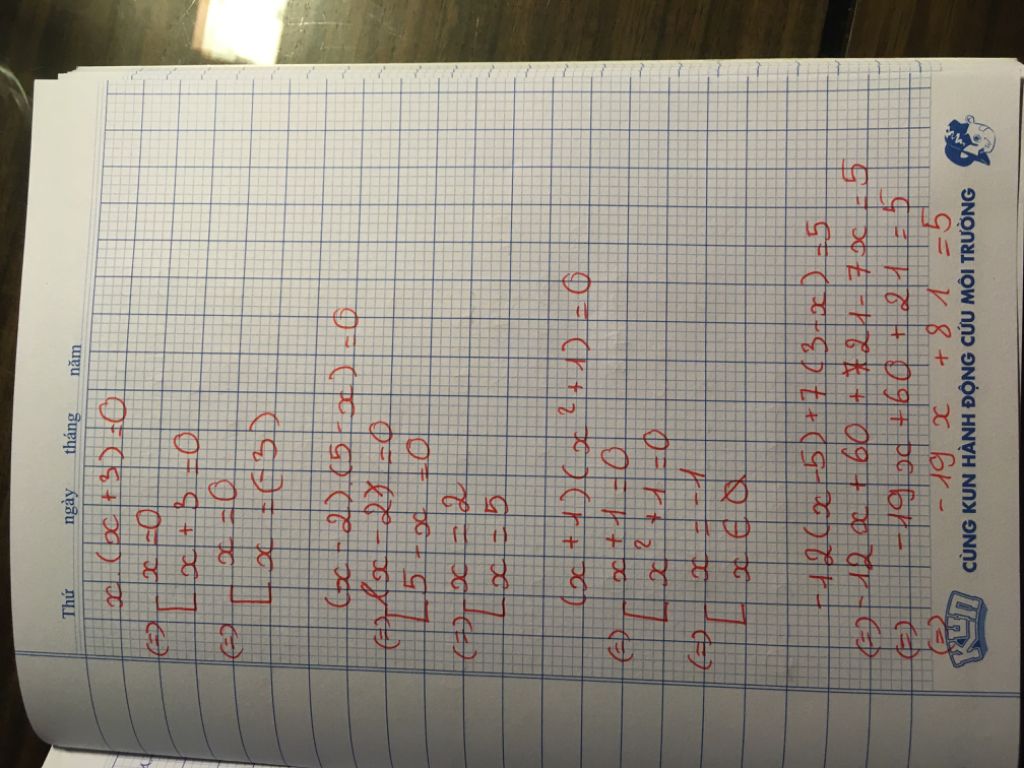 Thứ ngày tháng năm
x.(x+3)=0
(=) [ x=0
[ x+3=0
(=) [ x=0
[ x=(-3)
(x-2)(5-x)=0
(=) [ (x-2)=0
[ 5-x=0
(=) [ x=2
[ x=5
(x+1)(x²+1)=0
(=) [ x+1=0
[ x²+1=0
(=) [ x=-1
[ x∈∅
-12(x-5)+7(3-x)=5
(=) -12x+60+721-7x=5
(=) -19x+60+21=5
(=) -19x+81=5
KUN
CÙNG KUN HÀNH ĐỘNG CỨU MÔI TRƯỜNG